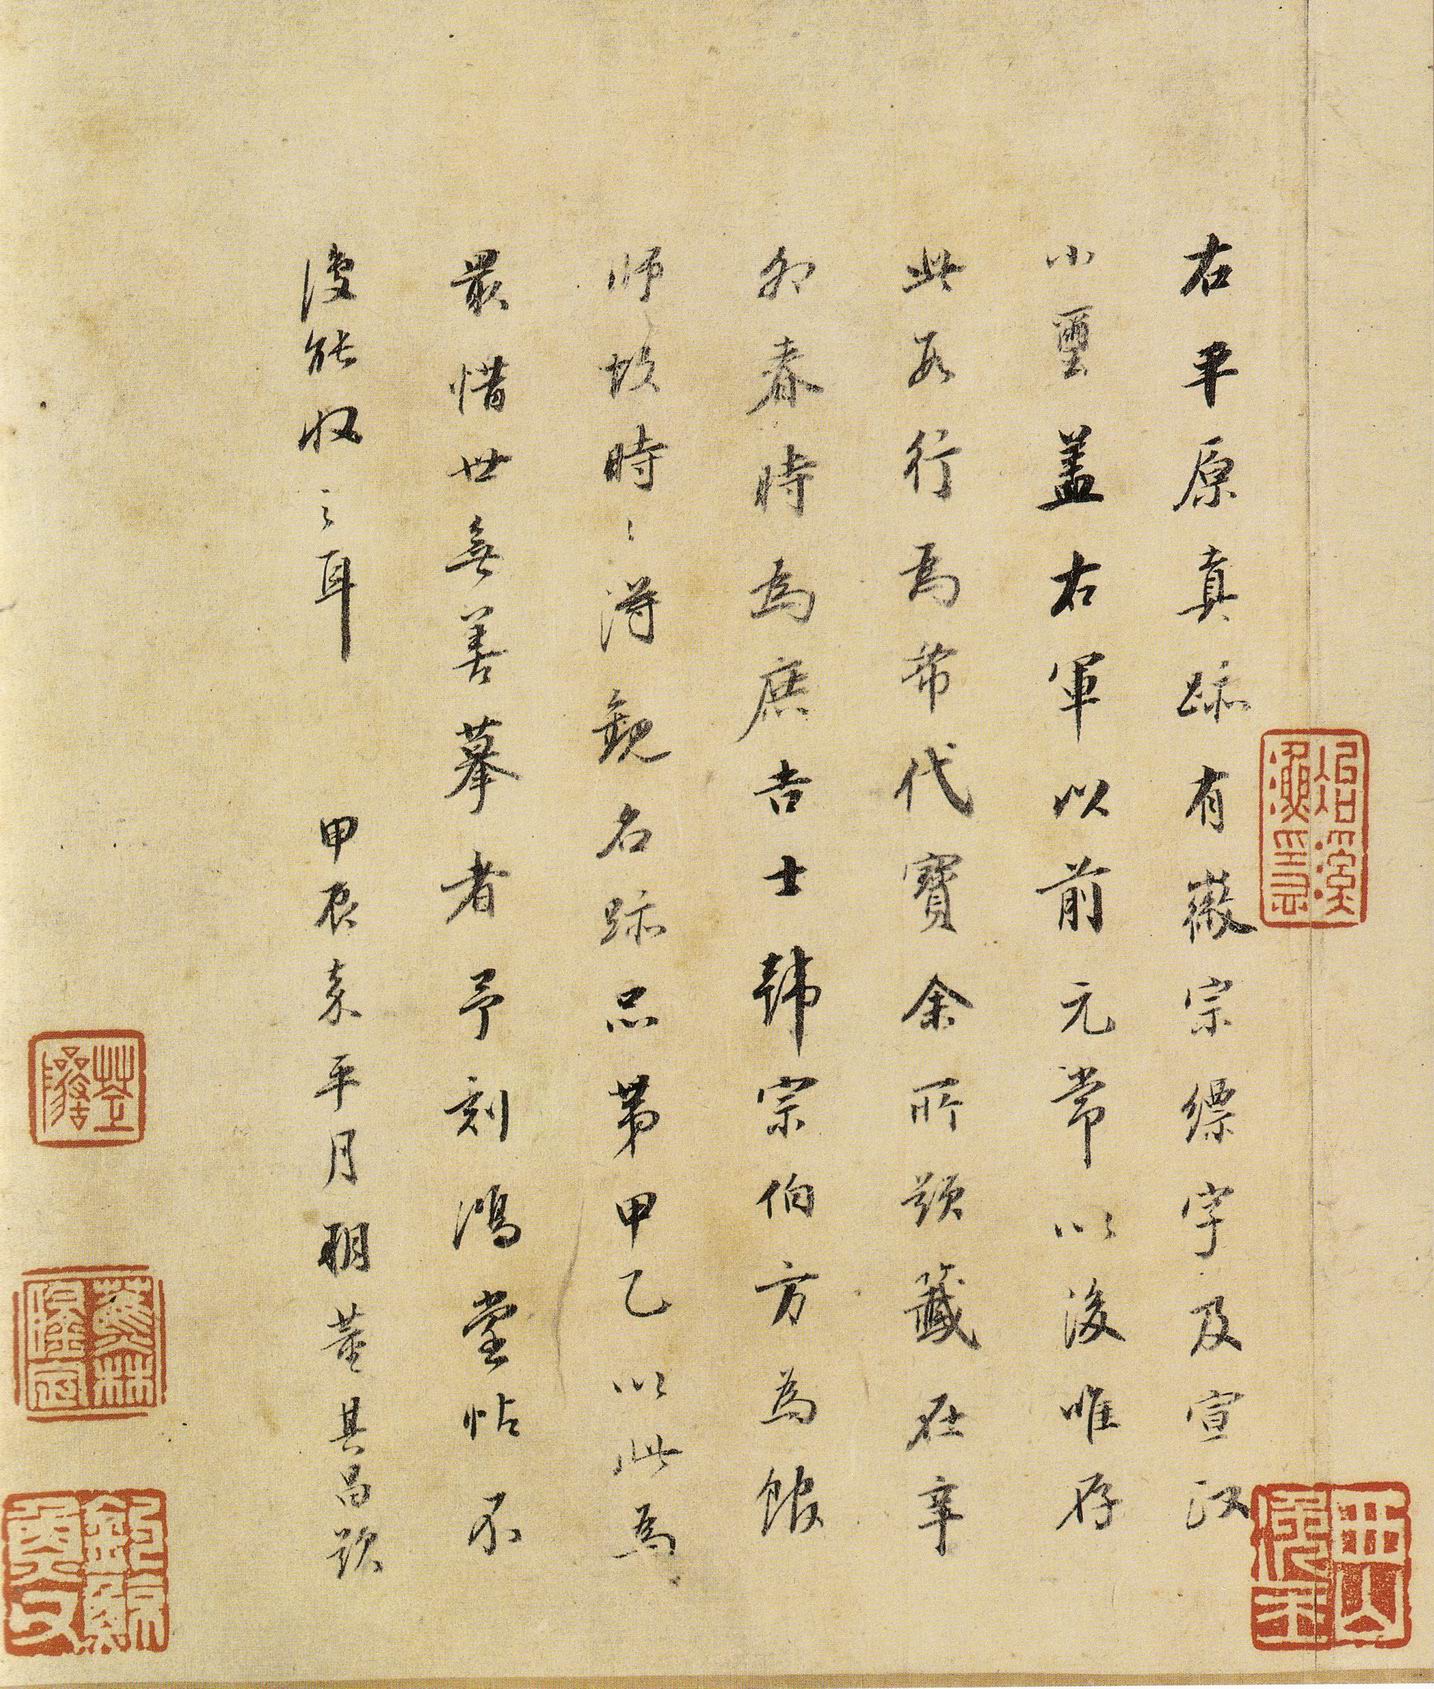 右平原真跡有徽宗縹字及宣政
小璽蓋右軍以前元常以後唯存
此數行為希代寶余所題籤在辛
卯春時為庶吉士韓宗伯方為館
師故時時得觀名跡品第甲乙以此為
最惜世無善摹者予刻鴻堂帖不
復能收之耳 甲辰嘉平月朔董其昌題
冶溪漁隱